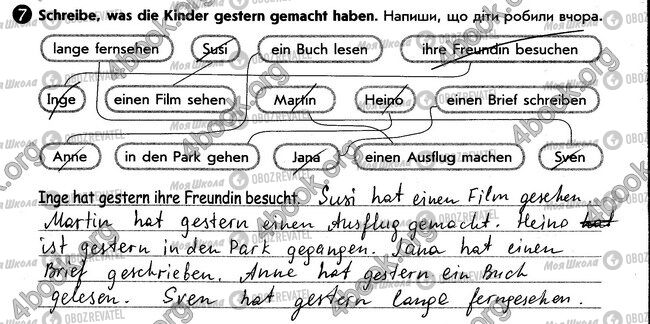 7 Schreibe, was die Kinder gestern gemacht haben. Напиши, що діти робили вчора.
lange fernsehen Susi ein Buch lesen ihre Freundin besuchen
Inge einen Film sehen Martin Heino einen Brief schreiben
Anne in den Park gehen Jana einen Ausflug machen Sven
Inge hat gestern ihre Freundin besucht. Susi hat einen Film gesehen.
Martin hat gestern einen Ausflug gemacht. Heino hat
ist gestern in den Park gegangen. Jana hat einen
Brief geschrieben. Anne hat gestern ein Buch
gelesen. Sven hat gestern lange ferngesehen.